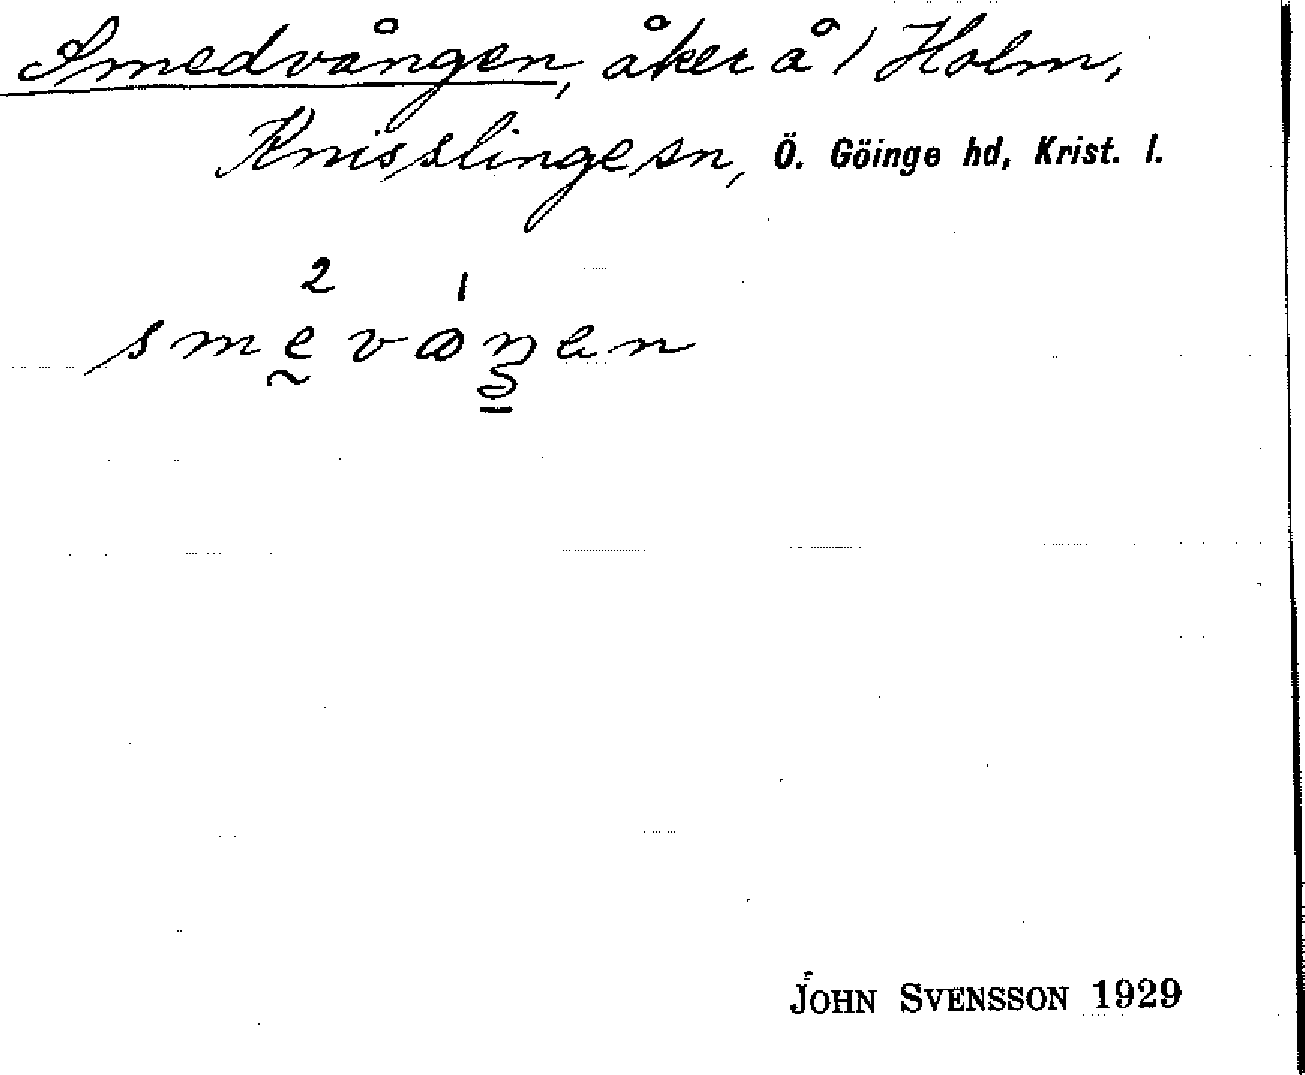 Smedvången, åker å 1 Holm,
Knisslinge sn, Ö. Göinge hd, Krist. l.
2 1
smevåŋen
JOHN SVENSSON 1929